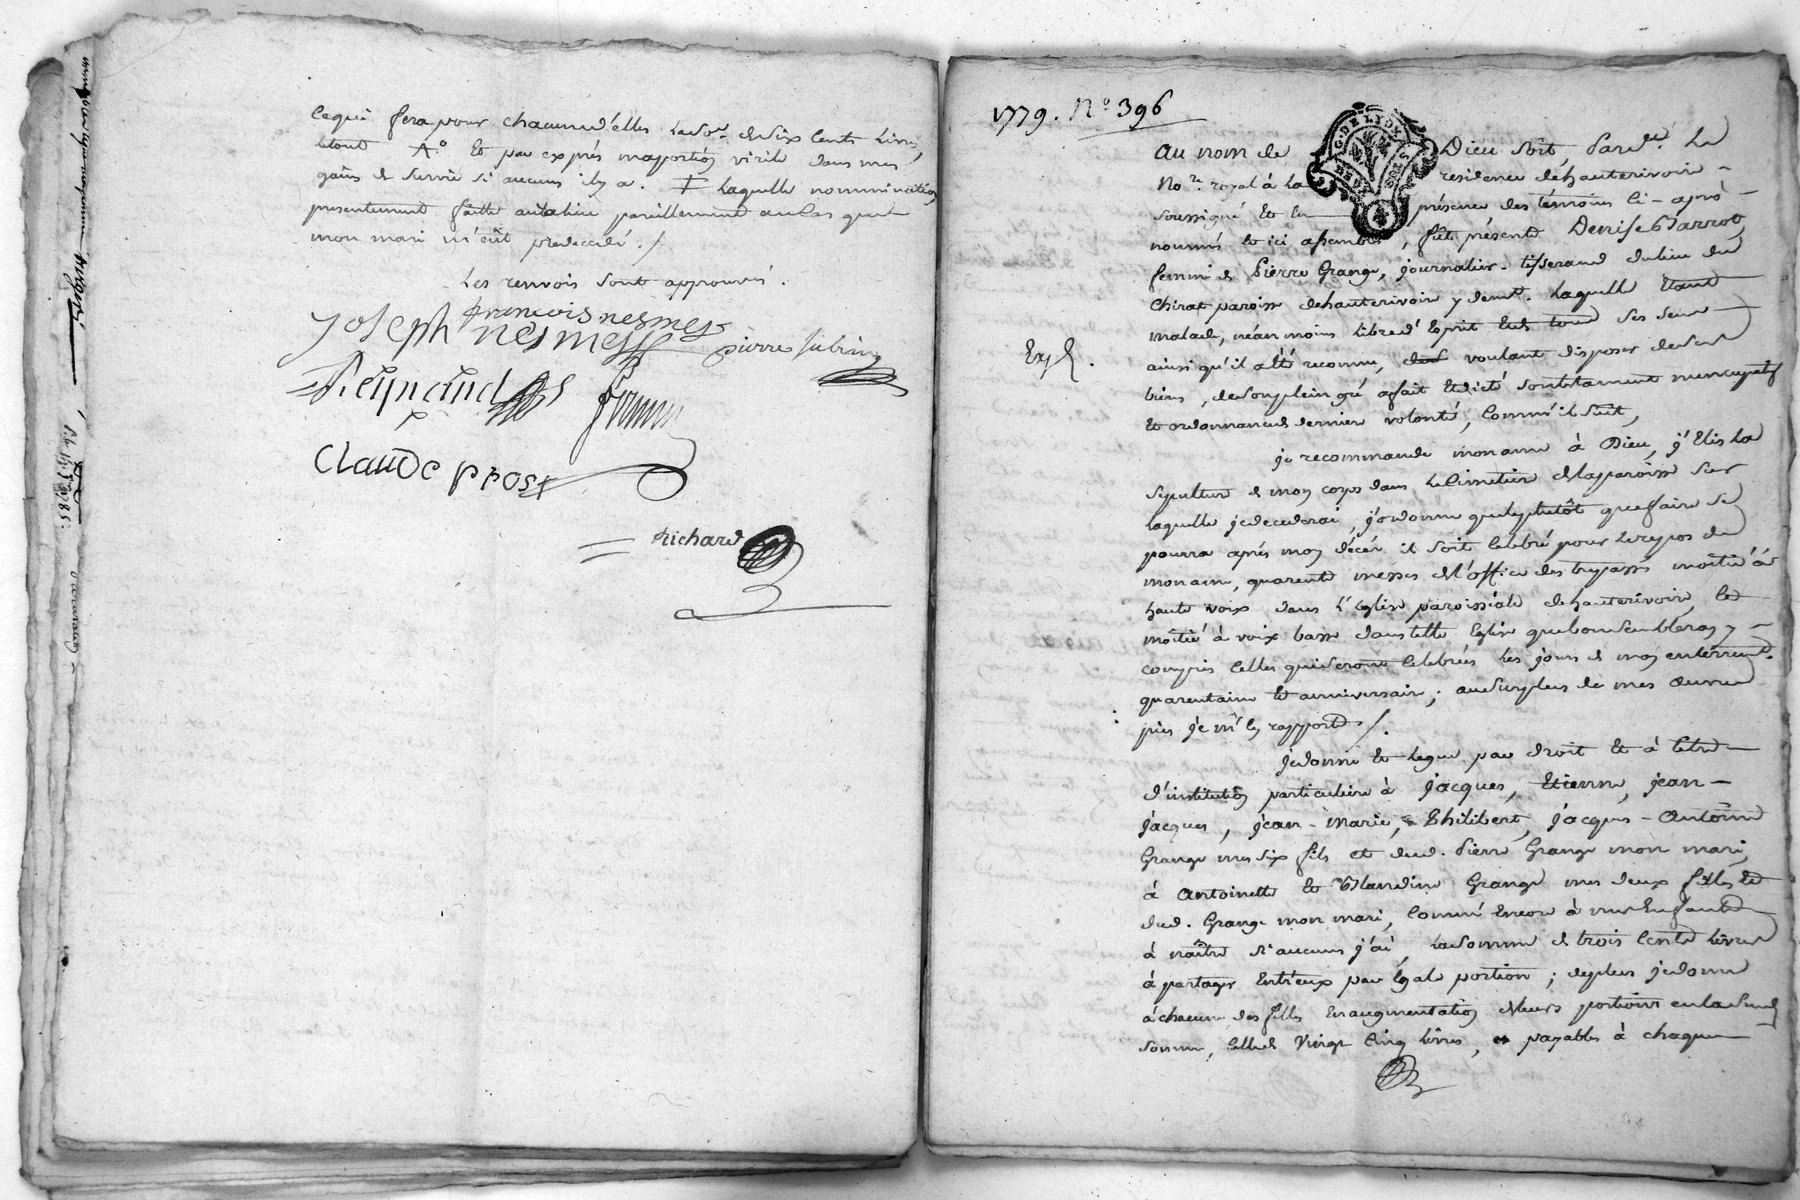 ce qui sera pour chacune d'elles la so.e de six cents livres,
le tout A.o Et par exprés ma portion virile dans mes
gains de survie si aucuns il y a. laquelle nomminaôn
presentement faitte aura lieu pareillement au cas que
mon mari m'eût predecedé ./
Les renvois sont approuvés.
francois nesmes
Joseph nesmes pierre Jubin
Reynaud
Claude Prost
Richard
1779. N.o 396
Au nom de Dieu soit Pard.t Le
No.re royal à la residence de hauterivoire
soussigné Et en présence des témoins ci-après
nommés Et ici assemblés, fût présente Denise Parrot
femme de Pierre Grange, journalier-tisserand du lieu du
Chirat paroisse de hauterivoire y demt. laquelle Etant
malade, néanmoins libre d'Esprit Et de tous ses sens
ainsi qu'il a été reconnu, voulant disposer de ses
Expé.
biens, de son plein gré a fait Et dicté son testament nuncupatif
Et ordonnance de derniere volonté, comm'il suit,
je recommande mon ame à Dieu, j'Elis la
sepulture de mon corps dans le cimetiere de la paroisse sur
laquelle je decederai, j'ordonne que le plutôt que faire se
pourra après mon décés il soit celebré pour le repos de
mon ame, quarente messes de l'office des trepassés moitié à
haute voix dans l'Eglise paroissiale de hauterivoire, Et
moitié à voix basse dans telle Eglise que bon semblera, y
compris celles qui seront celebrées les jours de mon enterremt.
quarentaine Et anniversaire; au surplus de mes œuvres
pies je m'en rapporte ./.
je donne Et legue par droit Et à titre
d'institutiôn particuliere à Jacques, Etienne, jean-
Jacques, jean-Marie, Philibert, Jacques-Antoine
Grange mes six fils et dud. Pierre Grange mon mari,
à Antoinette Et Blandine Grange mes deux filles Et
dud. Grange mon mari, comme Encore à mes Enfants
à naître si aucuns j'ai, la somme de trois cents livres
à partager Entr'eux par Egale portion; de plus je donne
à chacune des filles En augmentation de leurs portions en lad.
somme, celle de vingt cinq livres, payables à chaque